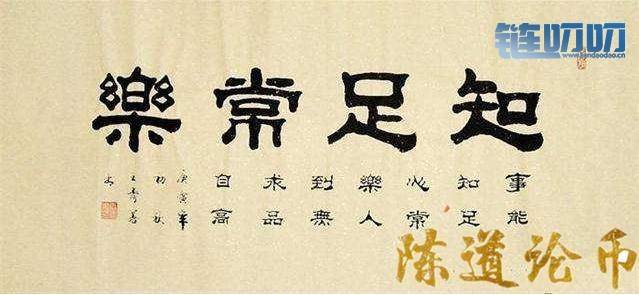 链叨叨
知足常樂
事能
知足
心常
樂人
到無
求品
自高
庚寅年
初秋
陈道论币